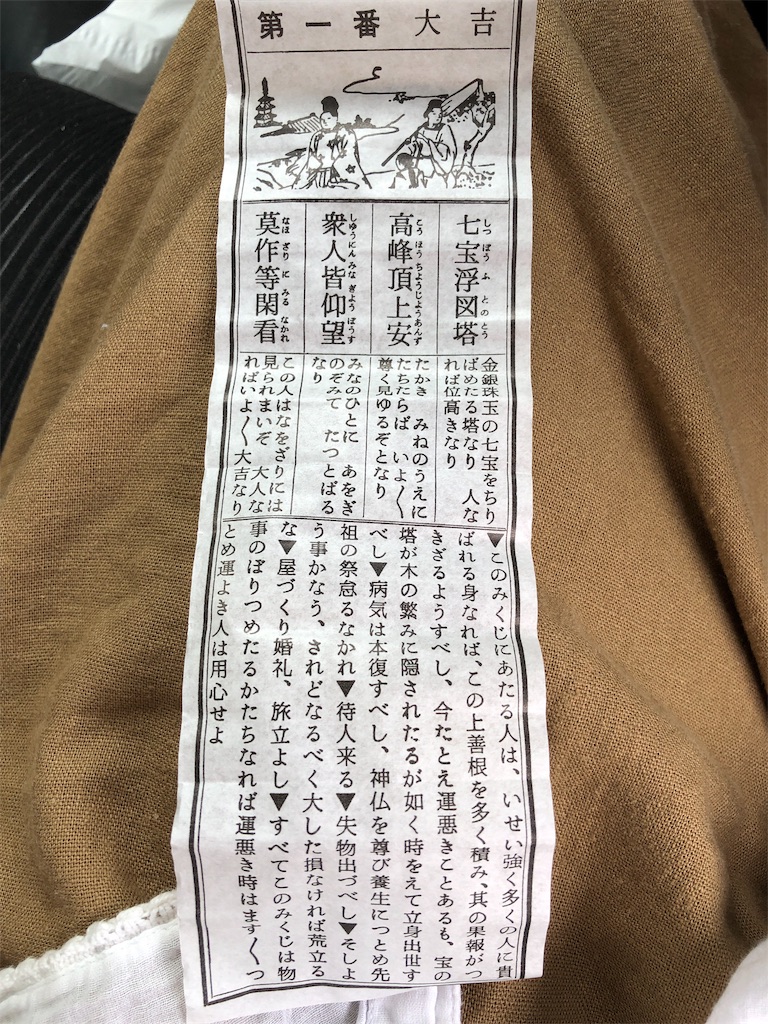 第一番大吉
七宝浮図塔
しつぽうふとのとう
高峰頂上安
こうほうちようじようあんず
衆人皆仰望
しゆうにんみなぎようぼうす
莫作等閑看
なほざりにみるなかれ
金銀珠玉の七宝をちり
ばめたる塔なり　人な
れば位高きなり
たかき　みねのうえに
たちたらば　いよ〱
尊く見ゆるぞとなり
みなのひとに　あをぎ
のぞみて　たつとばる
なり
この人はなをざりには
見られまいぞ　大人な
ればいよ〱大吉なり
▼このみくじにあたる人は、いせい強く多くの人に貴
ばれる身なれば、この上善根を多く積み、其の果報がつ
きざるようすべし、今たとえ運悪きことあるも、宝の
塔が木の繁みに隠されたるが如く時をえて立身出世す
べし▼病気は本復すべし、神仏を尊び養生につとめ先
祖の祭怠るなかれ▼待人来る▼失物出づべし▼そしよ
う事かなう、されどなるべく大した損なければ荒立る
な▼屋づくり婚礼、旅立よし▼すべてこのみくじは物
事のぼりつめたるかたちなれば運悪き時はます〱つ
とめ運よき人は用心せよ